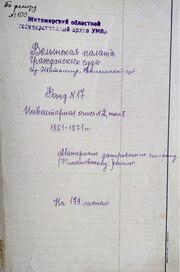 №100
Житомирской областной
государственный архив УМВД
Волынская палата
гражданского суда
гор. Житомир, Волынской губ.
Фонд №17
Инвентарная опись №2, том I.
1851-1871 гг.
Материалы датированы по старому
На 179 листах.